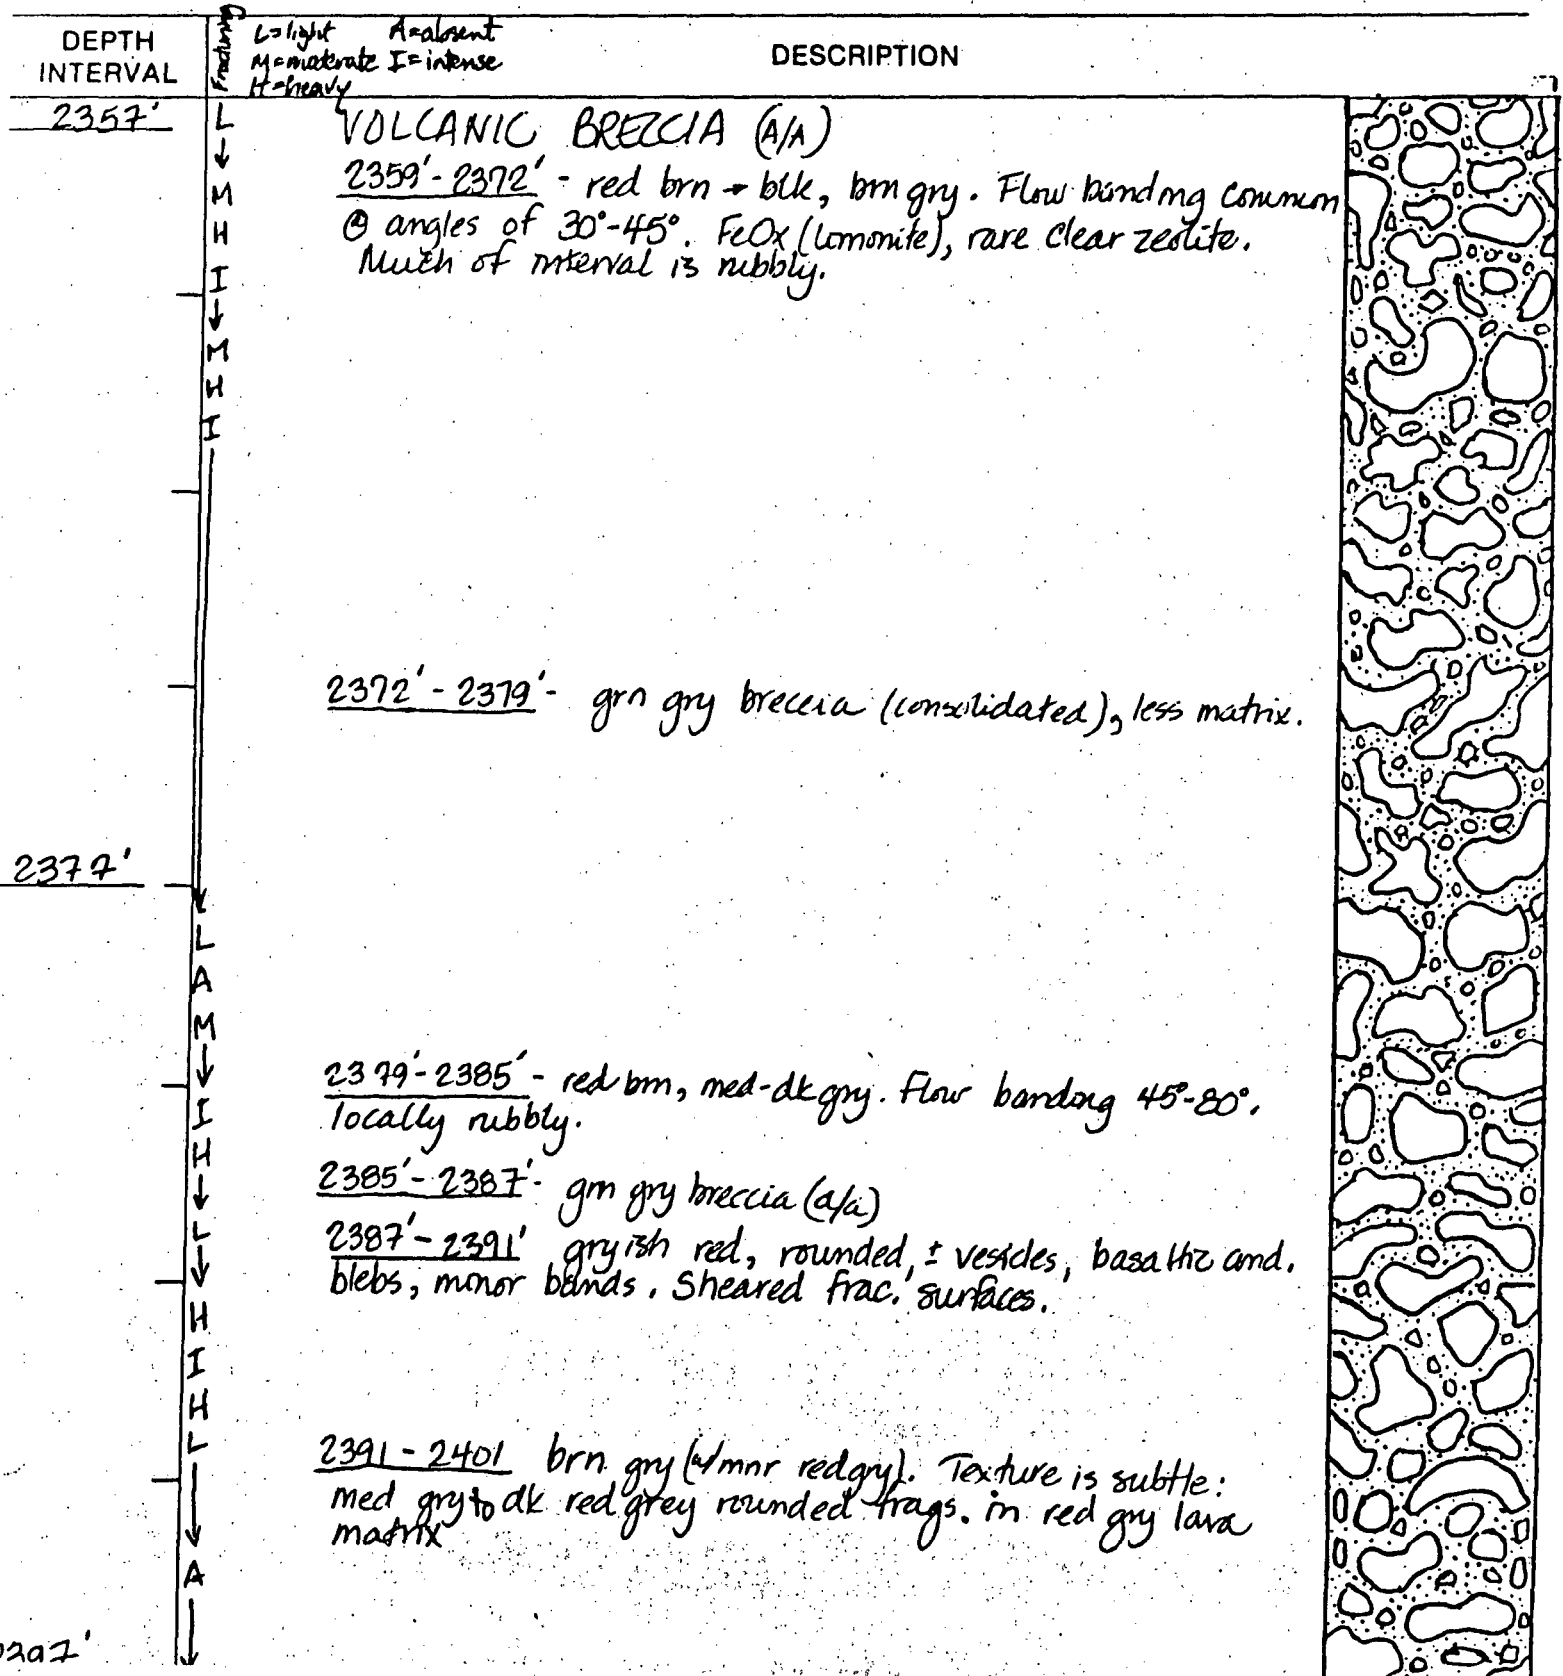 DEPTH INTERVAL
Fracturing
L=light A=absent
M=moderate I=intense
H=heavy
DESCRIPTION
2357'
L
↓
M
H
I
↓
M
H
I
VOLCANIC BRECCIA (A/A)
2359'-2372' - red brn → blk, brn gry. Flow banding common
@ angles of 30°-45°. FeOx (lomonite), rare clear zeolite.
Much of interval is rubbly.
2372'-2379'- grn gry breccia (consolidated), less matrix.
2377'
↓
L
A
M
↓
I
H
↓
L
↓
H
I
H
L
↓
A
↓
2379'-2385' - red brn, med-dk gry. Flow banding 45°-80°.
locally rubbly.
2385'-2387'- grn gry breccia (a/a)
2387'-2391' gryish red, rounded, ± vesicles, basaltic and.
blebs, minor bands. Sheared frac. surfaces.
2391-2401 brn gry (w/mnr red gry). Texture is subtle:
med gry to dk red grey rounded frags. in red gry lava
matrix